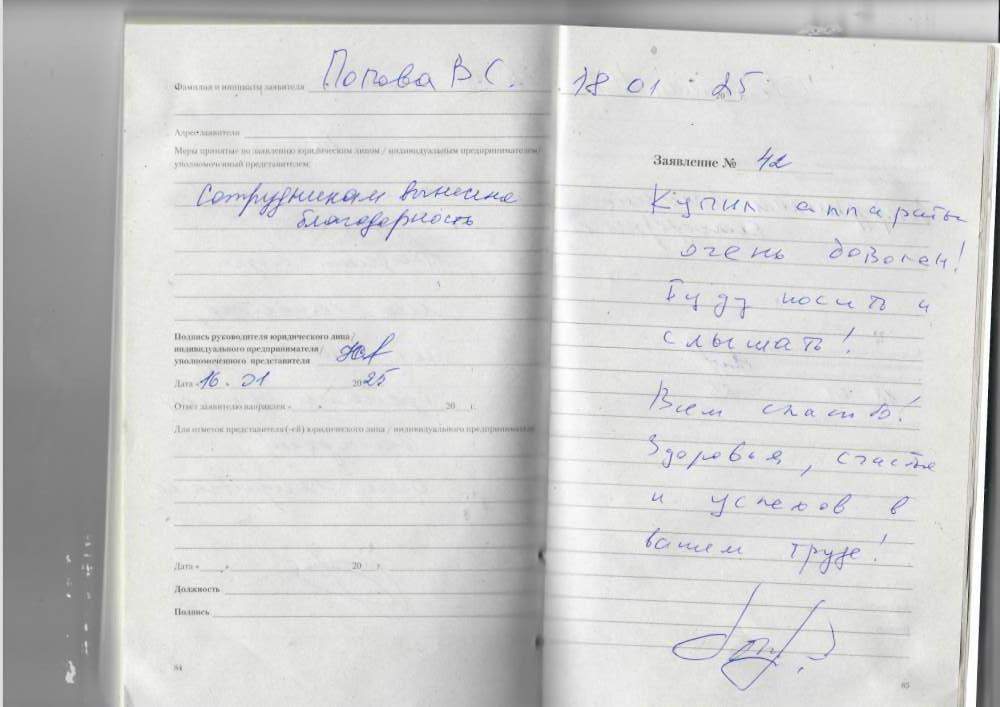 Фамилия и инициалы заявителя Попова В С.
Адрес заявителя
Меры принятые по заявлению юридическим лицом / индивидуальным предпринимателем/
уполномоченный представителем:
Сотрудникам вынесена
благодарность
Подпись руководителя юридического лица /
индивидуального предпринимателя /
уполномоченного представителя
Дата «16 » 01 2025
Ответ заявителю направлен « » 20 г.
Для отметок представителя(-ей) юридического лица / индивидуального предпринимателя
Дата « » 20 г.
Должность
Подпись
84
18 01 20 25 г.
Заявление № 42
Купил аппараты
очень доволен!
Буду носить и
слышать!
Всем спасибо!
Здоровья, счастья
и успехов в
вашем труде!
85